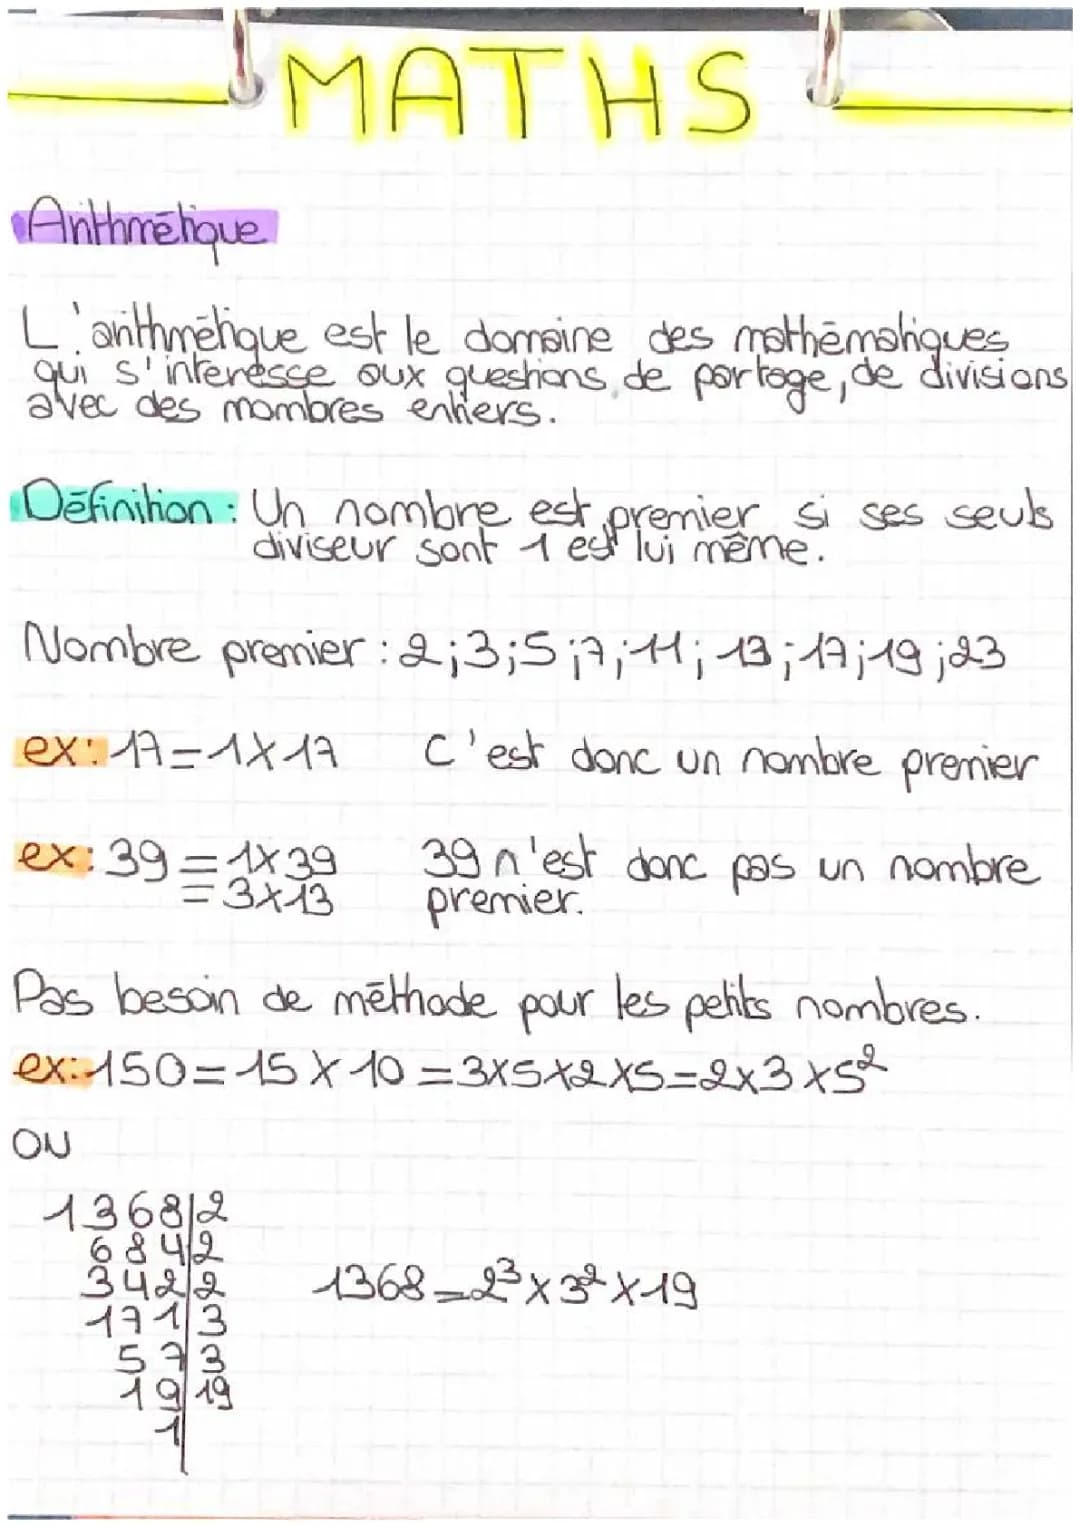 MATHS
Arithmétique
L'arithmétique est le domaine des mathématiques
qui s'interesse aux questions de partage, de divisions
avec des nombres entiers.
Définition : Un nombre est premier si ses seuls
diviseur sont 1 est lui même.
Nombre premier : 2 ; 3 ; 5 ; 7 ; 11 ; 13 ; 17 ; 19 ; 23
ex: 17 = 1 x 17 C'est donc un nombre premier
ex: 39 = 1 x 39 39 n'est donc pas un nombre
= 3 x 13 premier.
Pas besoin de méthode pour les petits nombres.
ex: 150 = 15 x 10 = 3 x 5 x 2 x 5 = 2 x 3 x 5²
OU
1368 | 2
684 | 2
342 | 2
171 | 3
57 | 3
19 | 19
1 |
1368 = 2³ x 3² x 19